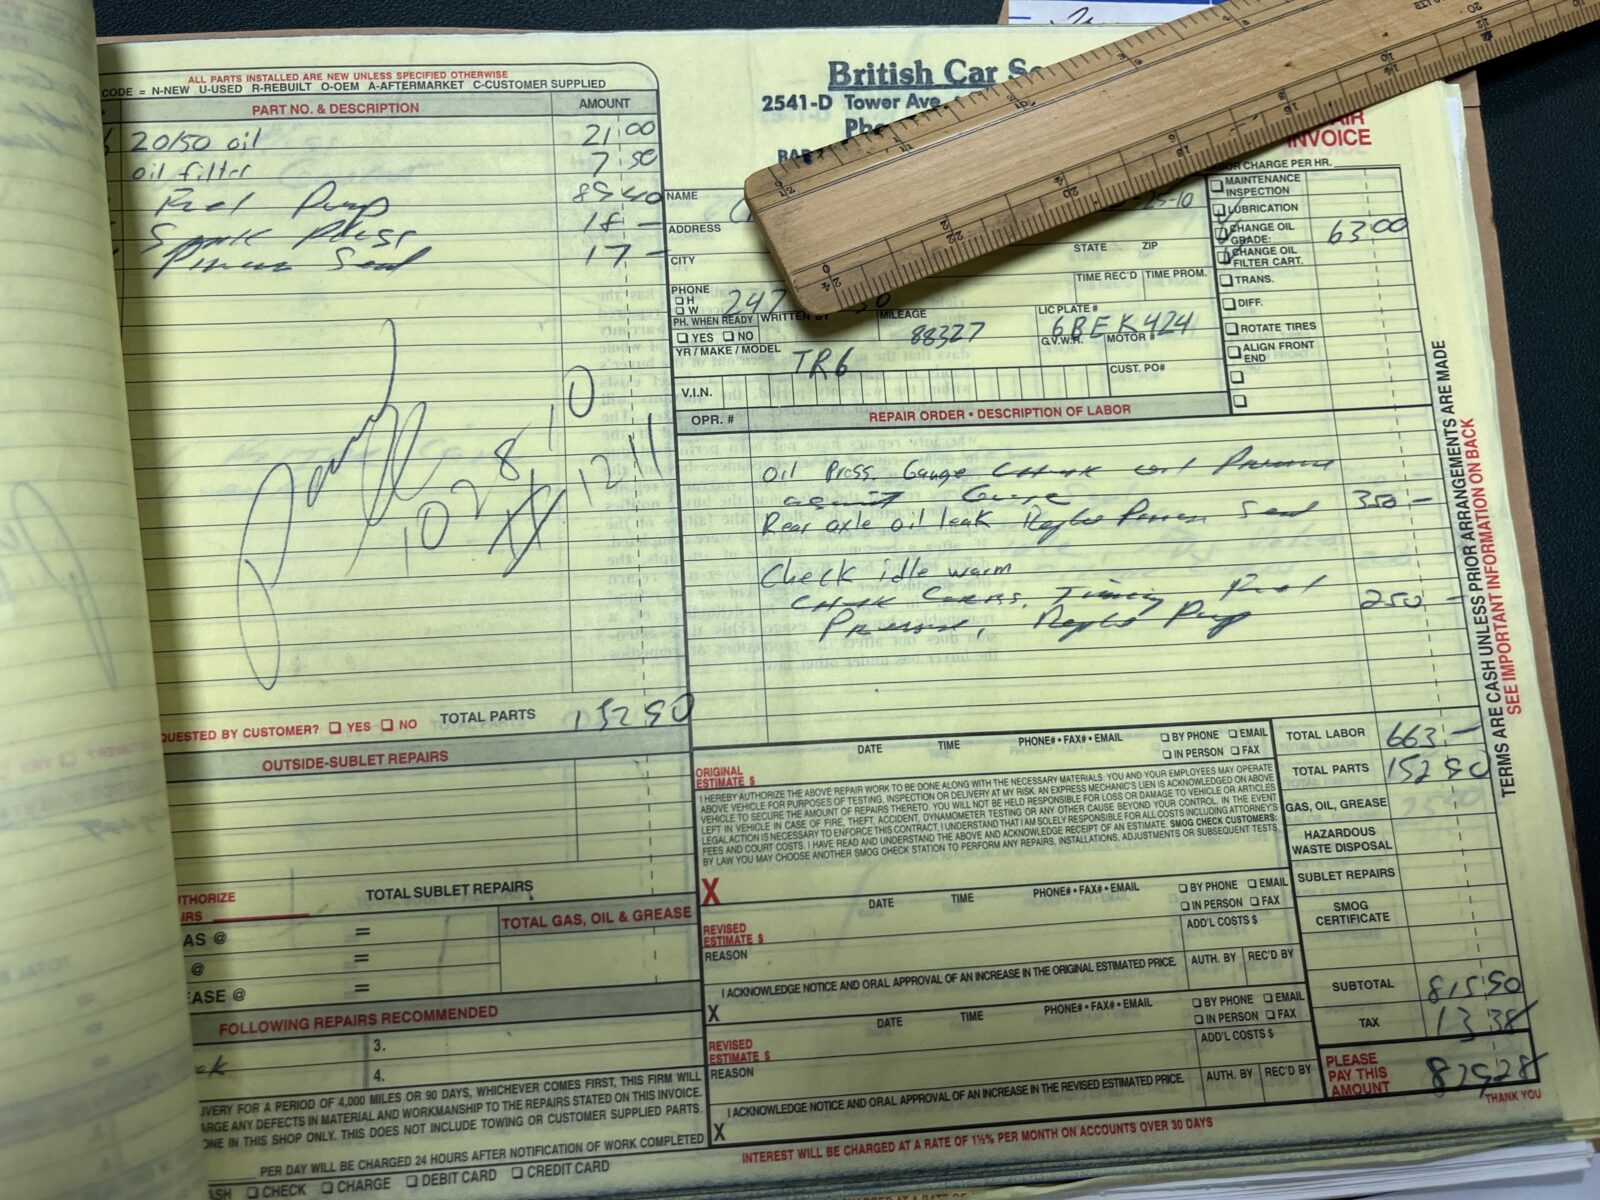 ALL PARTS INSTALLED ARE NEW UNLESS SPECIFIED OTHERWISE
CODE = N-NEW U-USED R-REBUILT O-OEM A-AFTERMARKET C-CUSTOMER SUPPLIED
PART NO. & DESCRIPTION AMOUNT
20/50 oil 21 00
oil filter 7 50
Fuel Pump 89 40
Spark Plugs 18 -
Pinion Seal 17 -
10 28 10
12 11
QUESTED BY CUSTOMER? YES NO TOTAL PARTS 152 90
OUTSIDE-SUBLET REPAIRS
THORIZE
IRS
TOTAL SUBLET REPAIRS
TOTAL GAS, OIL & GREASE
AS @ =
@ =
EASE @ =
FOLLOWING REPAIRS RECOMMENDED
3.
4.
IVERY FOR A PERIOD OF 4,000 MILES OR 90 DAYS, WHICHEVER COMES FIRST, THIS FIRM WILL
ARGE ANY DEFECTS IN MATERIAL AND WORKMANSHIP TO THE REPAIRS STATED ON THIS INVOICE.
ONE IN THIS SHOP ONLY. THIS DOES NOT INCLUDE TOWING OR CUSTOMER SUPPLIED PARTS.
PER DAY WILL BE CHARGED 24 HOURS AFTER NOTIFICATION OF WORK COMPLETED
ASH CHECK CHARGE DEBIT CARD CREDIT CARD
British Car Se
2541-D Tower Ave
Pho
BAR
AIR
INVOICE
NAME
ADDRESS 25-10
CITY STATE ZIP
PHONE
H
W
247 50
TIME REC'D TIME PROM.
PH. WHEN READY WRITTEN BY MILEAGE LIC PLATE #
YES NO 88327 6BEK424
YR / MAKE / MODEL G.V.W.R. MOTOR #
TR6
V.I.N. CUST. PO#
OR CHARGE PER HR.
MAINTENANCE
INSPECTION
LUBRICATION
CHANGE OIL
GRADE: 63 00
CHANGE OIL
FILTER CART.
TRANS.
DIFF.
ROTATE TIRES
ALIGN FRONT
END
OPR. # REPAIR ORDER • DESCRIPTION OF LABOR
Oil Press. Gauge Check oil Pressure
against Gauge
Rear axle oil leak Replace Pinion Seal 350 -
Check idle warm
Check Carbs, Timing Fuel 250 -
Pressure, Replace Pump
TERMS ARE CASH UNLESS PRIOR ARRANGEMENTS ARE MADE
SEE IMPORTANT INFORMATION ON BACK
DATE TIME PHONE# • FAX# • EMAIL BY PHONE EMAIL
IN PERSON FAX
ORIGINAL
ESTIMATE $
I HEREBY AUTHORIZE THE ABOVE REPAIR WORK TO BE DONE ALONG WITH THE NECESSARY MATERIALS. YOU AND YOUR EMPLOYEES MAY OPERATE
ABOVE VEHICLE FOR PURPOSES OF TESTING, INSPECTION OR DELIVERY AT MY RISK. AN EXPRESS MECHANIC'S LIEN IS ACKNOWLEDGED ON ABOVE
VEHICLE TO SECURE THE AMOUNT OF REPAIRS THERETO. YOU WILL NOT BE HELD RESPONSIBLE FOR LOSS OR DAMAGE TO VEHICLE OR ARTICLES
LEFT IN VEHICLE IN CASE OF FIRE, THEFT, ACCIDENT, DYNAMOMETER TESTING OR ANY OTHER CAUSE BEYOND YOUR CONTROL. IN THE EVENT
LEGAL ACTION IS NECESSARY TO ENFORCE THIS CONTRACT, I UNDERSTAND THAT I AM SOLELY RESPONSIBLE FOR ALL COSTS INCLUDING ATTORNEY'S
FEES AND COURT COSTS. I HAVE READ AND UNDERSTAND THE ABOVE AND ACKNOWLEDGE RECEIPT OF AN ESTIMATE. SMOG CHECK CUSTOMERS:
BY LAW YOU MAY CHOOSE ANOTHER SMOG CHECK STATION TO PERFORM ANY REPAIRS, INSTALLATIONS, ADJUSTMENTS OR SUBSEQUENT TESTS.
X
DATE TIME PHONE# • FAX# • EMAIL BY PHONE EMAIL
IN PERSON FAX
REVISED
ESTIMATE $ ADD'L COSTS $
REASON AUTH. BY REC'D BY
I ACKNOWLEDGE NOTICE AND ORAL APPROVAL OF AN INCREASE IN THE ORIGINAL ESTIMATED PRICE.
X
DATE TIME PHONE# • FAX# • EMAIL BY PHONE EMAIL
IN PERSON FAX
REVISED
ESTIMATE $ ADD'L COSTS $
REASON AUTH. BY REC'D BY
I ACKNOWLEDGE NOTICE AND ORAL APPROVAL OF AN INCREASE IN THE REVISED ESTIMATED PRICE.
X
INTEREST WILL BE CHARGED AT A RATE OF 1½% PER MONTH ON ACCOUNTS OVER 30 DAYS
TOTAL LABOR 663 -
TOTAL PARTS 152 90
GAS, OIL, GREASE
HAZARDOUS
WASTE DISPOSAL
SUBLET REPAIRS
SMOG
CERTIFICATE
SUBTOTAL 815 90
TAX 13 38
PLEASE
PAY THIS
AMOUNT 829 28
THANK YOU